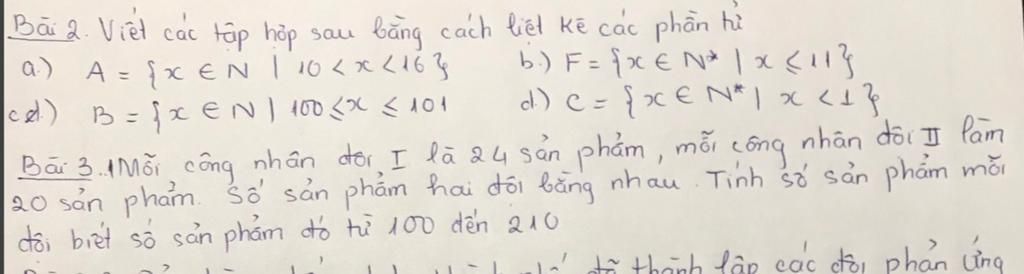 Bài 2. Viết các tập hợp sau bằng cách liệt kê các phần tử
a.) A = {x ∈ N | 10 < x < 16} b.) F = {x ∈ N* | x ≤ 11}
c) B = {x ∈ N | 100 ≤ x ≤ 101 d.) C = {x ∈ N* | x < 1}
Bài 3. Mỗi công nhân đội I là 24 sản phẩm, mỗi công nhân đội II làm
20 sản phẩm. Số sản phẩm hai đội bằng nhau. Tính số sản phẩm mỗi
đội biết số sản phẩm đó từ 100 đến 210
đã thành lập các đội phản ứng